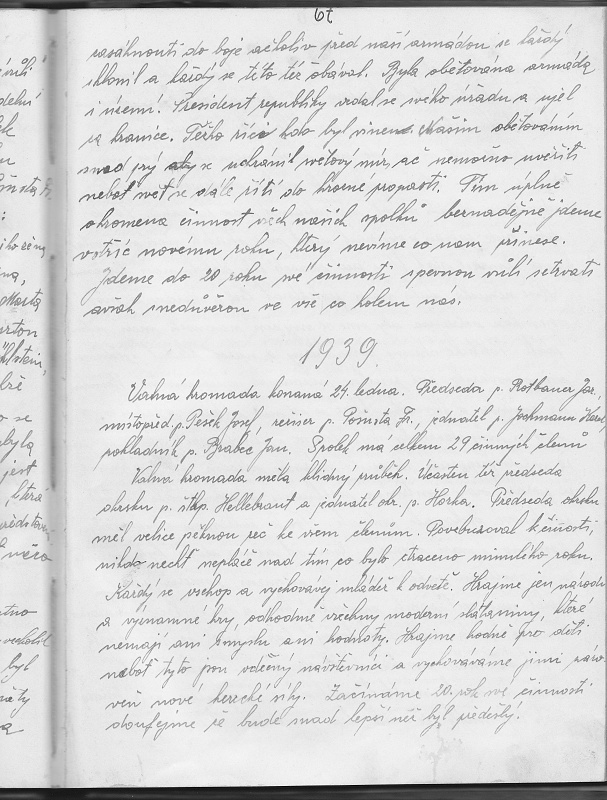 67
zasáhnouti do boje ačkoliv před naší armádou se každý
sklonil a každý se této též obával. Byla obětována armáda
i území. President republiky vzdal se svého úřadu a ujel
za hranice. Těžko říci kdo byl vinen. Naším obětováním
snad prý se uchránil světový mír, ač nemožno uvěřiti
neboť svět se stále řítí do hrozné propasti. Tím úplně
ochromena činnost všech našich spolků beznadějně jdeme
vstříc novému roku, který nevíme co nám přinese.
Jdeme do 20 roku své činnosti s pevnou vůlí setrvati
avšak s nedůvěrou ve vše co kolem nás.
1939.
Valná hromada konaná 24. ledna. Předseda p. Rotbauer Jar.,
místopřed. p. Pešek Josef, režiser p. Pošusta Fr., jednatel p. Jochmann Karel,
pokladník p. Brabec Jan. Spolek má celkem 29 činných členů
Valná hromada měla klidný průběh. Účasten též předseda
okrsku p. Hellebrant a jednatel okr. p. Horka. Předseda okrsku
měl velice pěknou řeč ke všem členům. Povzbuzoval k činnosti,
nikdo nechť nepláče nad tím co bylo ztraceno minulého roku.
Každý se vschop a vychovávej mládež k odvetě. Hrajme jen národní
a významné hry, odhoďme všechny moderní slátaniny, které
nemají ani smyslu ani hodnoty. Hrajme hodně pro děti
neboť tyto jsou vděčny návštěvníci a vychováváme jimi záro-
veň nové herecké síly. Začínáme 20. rok své činnosti
doufejme že bude snad lepší než byl předešlý.